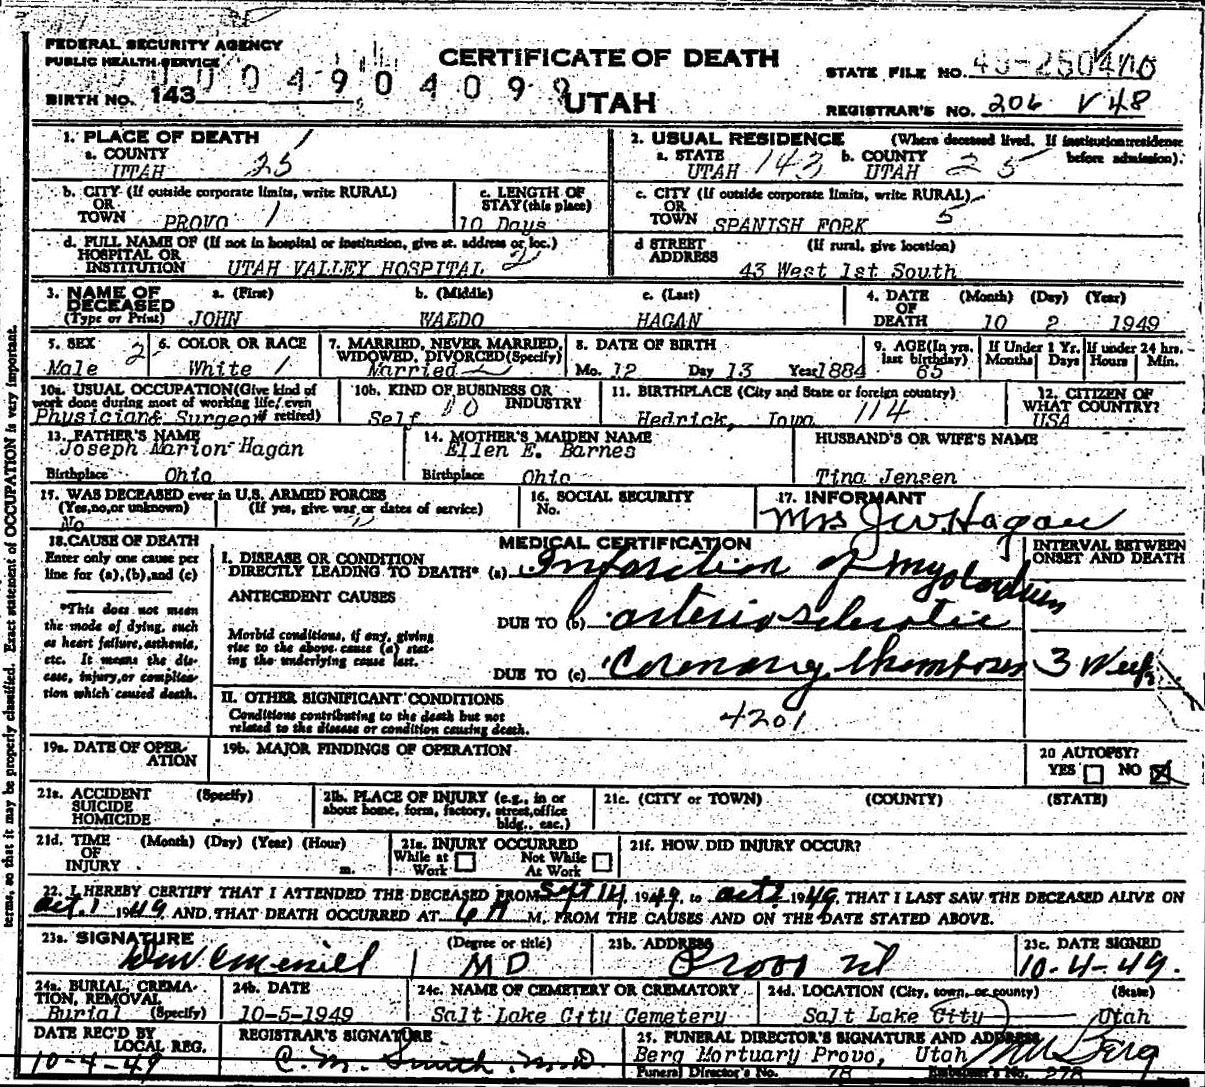 FEDERAL SECURITY AGENCY
PUBLIC HEALTH SERVICE
CERTIFICATE OF DEATH
UTAH
STATE FILE NO.
BIRTH NO. 143
REGISTRAR'S NO. 206 V 48
1. PLACE OF DEATH
a. COUNTY
UTAH 25
2. USUAL RESIDENCE (Where deceased lived. If institution: residence before admission).
a. STATE UTAH 143 b. COUNTY UTAH 25
b. CITY (If outside corporate limits, write RURAL)
OR
TOWN PROVO 1
c. LENGTH OF
STAY (this place)
10 Days
c. CITY (If outside corporate limits, write RURAL)
OR
TOWN SPANISH FORK 5
d. FULL NAME OF (If not in hospital or institution, give st. address or loc.)
HOSPITAL OR
INSTITUTION UTAH VALLEY HOSPITAL 2
d STREET (If rural, give location)
ADDRESS
43 West 1st South
3. NAME OF
DECEASED
(Type or Print)
a. (First) b. (Middle) c. (Last)
JOHN WAEDO HAGAN
4. DATE (Month) (Day) (Year)
OF
DEATH 10 2 1949
5. SEX 2
Male
6. COLOR OR RACE
White 1
7. MARRIED, NEVER MARRIED,
WIDOWED, DIVORCED (Specify)
Married
8. DATE OF BIRTH
Mo. 12 Day 13 Year 1884
9. AGE (In yrs.
last birthday)
65
If Under 1 Yr.
Months Days
If under 24 hrs.
Hours Min.
10a. USUAL OCCUPATION (Give kind of
work done during most of working life, even
if retired)
Physician & Surgeon
10b. KIND OF BUSINESS OR
INDUSTRY
Self
11. BIRTHPLACE (City and State or foreign country)
Hedrick, Iowa 114
12. CITIZEN OF
WHAT COUNTRY?
USA
13. FATHER'S NAME
Joseph Marion Hagan
Birthplace Ohio
14. MOTHER'S MAIDEN NAME
Ellen E. Barnes
Birthplace Ohio
HUSBAND'S OR WIFE'S NAME
Tina Jensen
15. WAS DECEASED ever in U.S. ARMED FORCES
(Yes, no, or unknown) (If yes, give war or dates of service)
No
16. SOCIAL SECURITY
No.
17. INFORMANT
Mrs J.W. Hagan
18. CAUSE OF DEATH
Enter only one cause per
line for (a), (b), and (c)
*This does not mean
the mode of dying, such
as heart failure, asthenia,
etc. It means the dis-
ease, injury, or complica-
tion which caused death.
MEDICAL CERTIFICATION
INTERVAL BETWEEN
ONSET AND DEATH
I. DISEASE OR CONDITION
DIRECTLY LEADING TO DEATH* (a) Infarction of Myocardium
ANTECEDENT CAUSES
DUE TO (b) arteriosclerotic
Morbid conditions, if any, giving
rise to the above cause (a) stat-
ing the underlying cause last.
DUE TO (c) Coronary thrombosis 3 Weeks
II. OTHER SIGNIFICANT CONDITIONS
Conditions contributing to the death but not
related to the disease or condition causing death.
4201
19a. DATE OF OPER-
ATION
19b. MAJOR FINDINGS OF OPERATION
20 AUTOPSY?
YES NO
21a. ACCIDENT (Specify)
SUICIDE
HOMICIDE
21b. PLACE OF INJURY (e.g., in or
about home, form, factory, street, office
bldg., eac.)
21c. (CITY or TOWN) (COUNTY) (STATE)
21d. TIME (Month) (Day) (Year) (Hour)
OF
INJURY m.
21e. INJURY OCCURRED
While at Work Not While At Work
21f. HOW DID INJURY OCCUR?
22. I HEREBY CERTIFY THAT I ATTENDED THE DECEASED FROM Sept 14, 1949, to Oct 2 1949, THAT I LAST SAW THE DECEASED ALIVE ON
Oct. 1 1949 AND THAT DEATH OCCURRED AT 6 A M. FROM THE CAUSES AND ON THE DATE STATED ABOVE.
23a. SIGNATURE (Degree or title)
MD
23b. ADDRESS
Provo Ut
23c. DATE SIGNED
10-4-49.
24a. BURIAL, CREMA-
TION, REMOVAL
Burial (Specify)
24b. DATE
10-5-1949
24c. NAME OF CEMETERY OR CREMATORY
Salt Lake City Cemetery
24d. LOCATION (City, town, or county) (State)
Salt Lake City Utah
DATE REC'D BY
LOCAL REG.
10-4-49
REGISTRAR'S SIGNATURE
C. M. Smith M.D.
25. FUNERAL DIRECTOR'S SIGNATURE AND ADDRESS
Berg Mortuary Provo, Utah
Funeral Director's No. 78 Embalmer's No. 278
terms, so that it may be properly classified. Exact statement of OCCUPATION is very important.